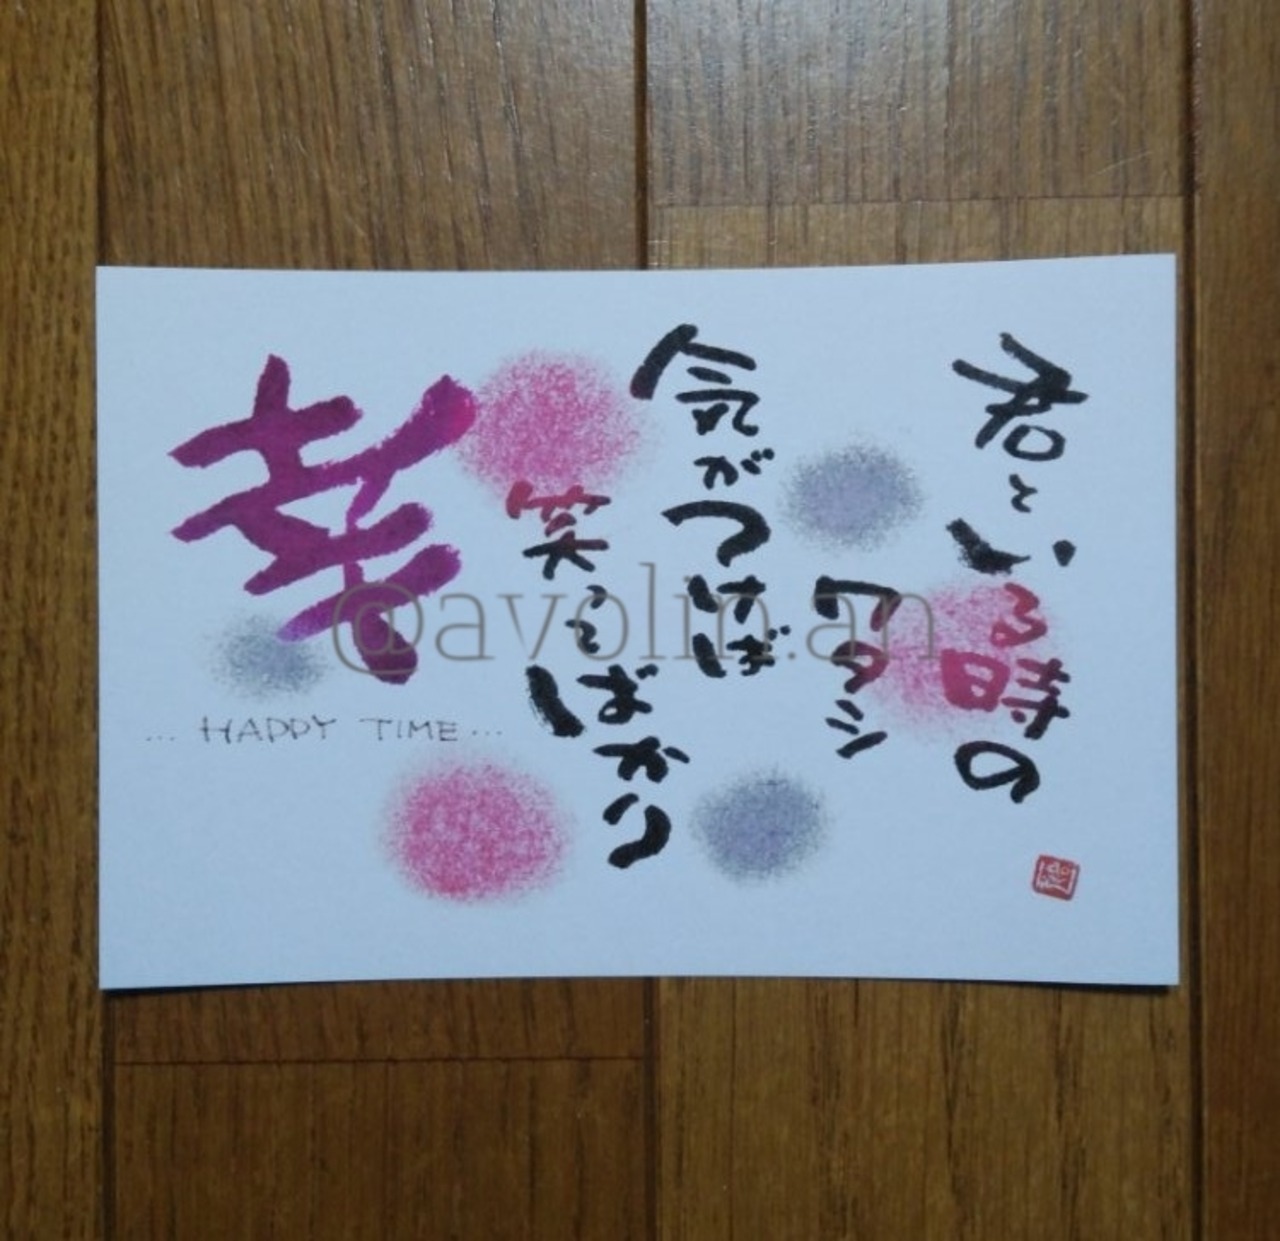 君といる時の
ワタシ
気がつけば
笑ってばかり
幸
...HAPPY TIME...
@avolin.an